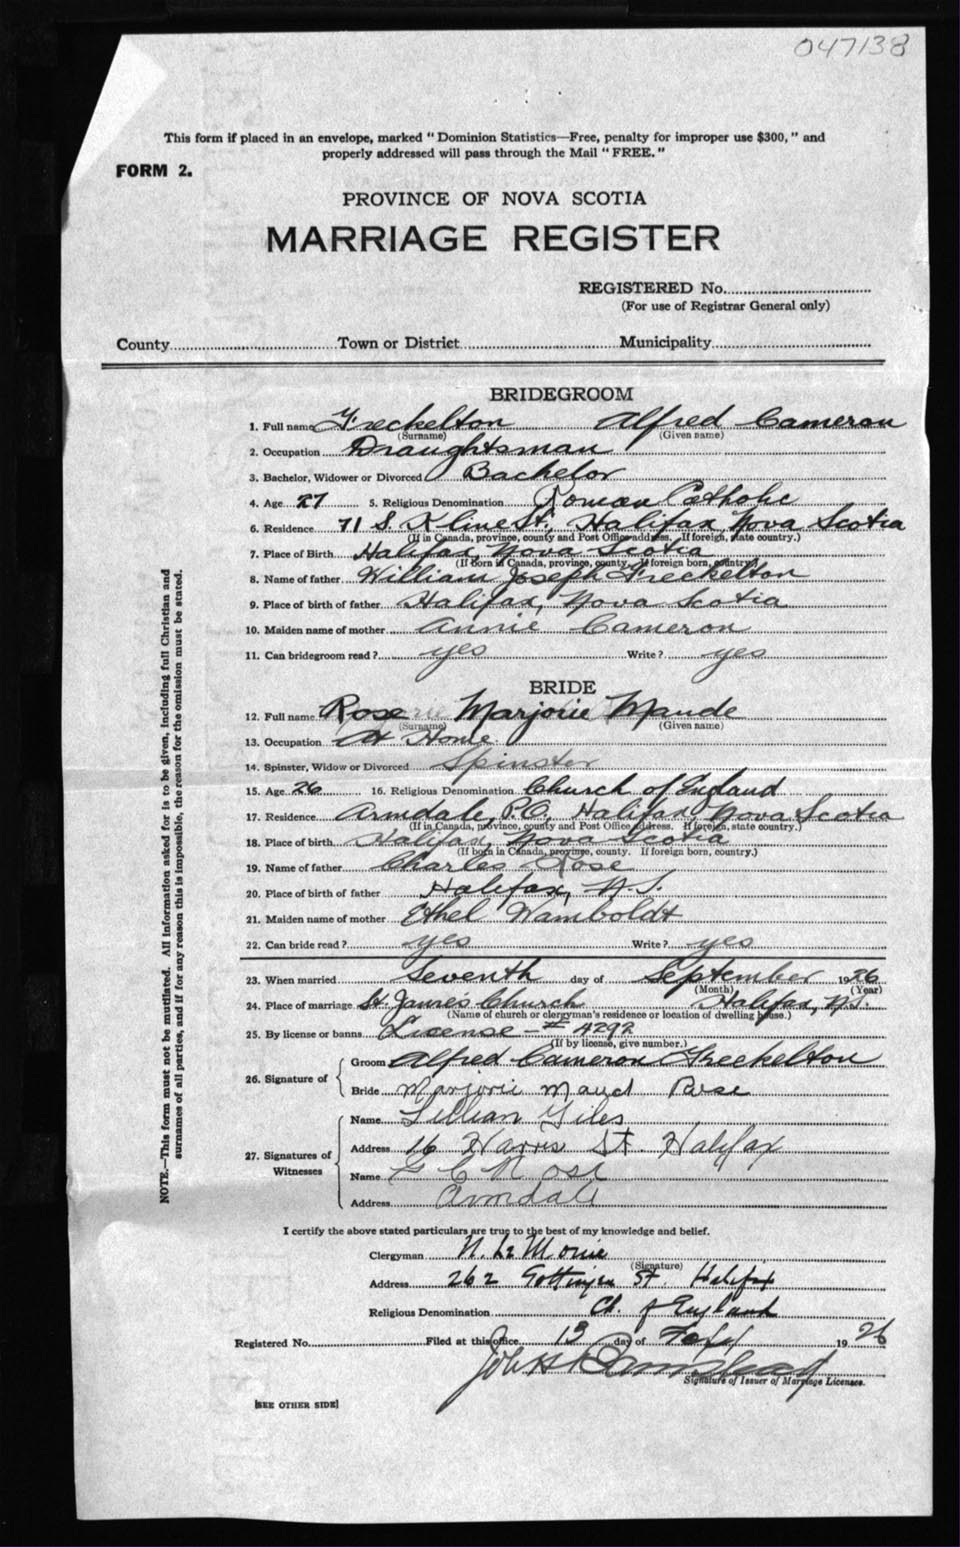 047138
This form if placed in an envelope, marked "Dominion Statistics—Free, penalty for improper use $300," and
properly addressed will pass through the Mail "FREE."
FORM 2.
PROVINCE OF NOVA SCOTIA
MARRIAGE REGISTER
REGISTERED No.
(For use of Registrar General only)
County Town or District Municipality
BRIDEGROOM
1. Full name Freckelton Alfred Cameron
(Surname) (Given name)
2. Occupation Draughtsman
3. Bachelor, Widower or Divorced Bachelor
4. Age 27 5. Religious Denomination Roman Catholic
6. Residence 71 S. Kline St., Halifax, Nova Scotia
(If in Canada, province, county and Post Office address. If foreign, state country.)
7. Place of Birth Halifax, Nova Scotia
(If born in Canada, province, county. If foreign born, country.)
8. Name of father William Joseph Freckelton
9. Place of birth of father Halifax, Nova Scotia
10. Maiden name of mother Annie Cameron
11. Can bridegroom read? yes Write? yes
BRIDE
12. Full name Rose Marjorie Maude
(Surname) (Given name)
13. Occupation At Home
14. Spinster, Widow or Divorced Spinster
15. Age 26 16. Religious Denomination Church of England
17. Residence Armdale, P.O., Halifax, Nova Scotia
(If in Canada, province, county and Post Office address. If foreign, state country.)
18. Place of Birth Halifax, Nova Scotia
(If born in Canada, province, county. If foreign born, country.)
19. Name of father Charles Rose
20. Place of birth of father Halifax, N.S.
21. Maiden name of mother Ethel Wamboldt
22. Can bride read? yes Write? yes
23. When married Seventh day of September 1926
(Month) (Year)
24. Place of marriage St. James Church Halifax, N.S.
(Name of church or clergyman's residence or location of dwelling house.)
25. By license or banns License - # 4292
(If by license, give number.)
26. Signature of Groom Alfred Cameron Freckelton
Bride Marjorie Maud Rose
27. Signatures of Witnesses Name Lillian Giles
Address 16 Harris St. Halifax
Name G C Rose
Address Armdale
I certify the above stated particulars are true to the best of my knowledge and belief.
Clergyman N. Le Moine
(Signature)
Address 262 Gottingen St. Halifax
Religious Denomination Ch. of England
Registered No. Filed at this office 13 day of 1926
Signature of Issuer of Marriage Licenses.
[SEE OTHER SIDE]
NOTE.—This form must not be mutilated. All information asked for is to be given, including full Christian and
surnames of all parties, and if for any reason this is impossible, the reason for the omission must be stated.